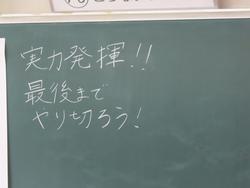 実力発揮!!
最後まで
やり切ろう!